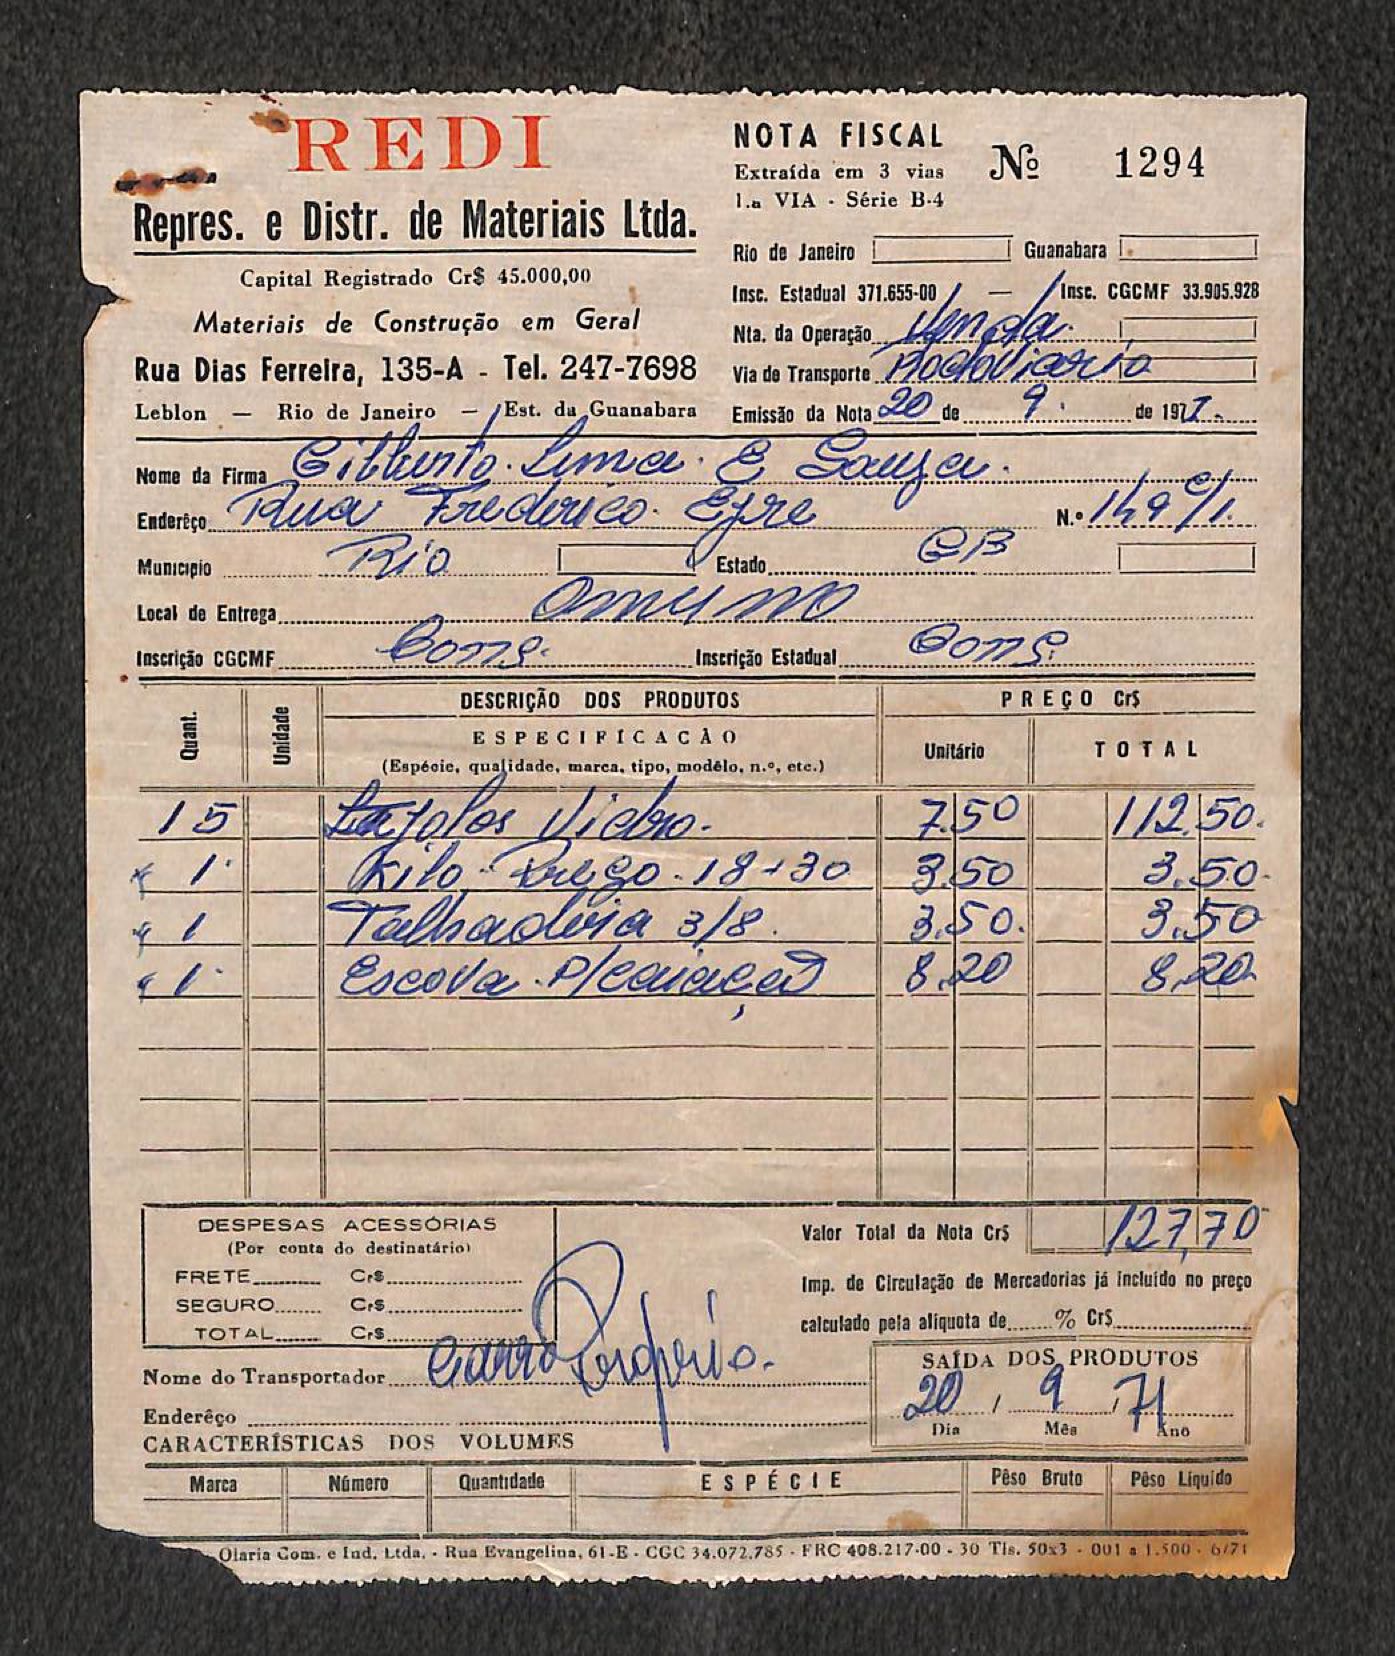 REDI
Repres. e Distr. de Materiais Ltda.
Capital Registrado Cr$ 45.000,00
Materiais de Construção em Geral
Rua Dias Ferreira, 135-A - Tel. 247-7698
Leblon — Rio de Janeiro — Est. da Guanabara
NOTA FISCAL
Extraída em 3 vias
1.a VIA - Série B-4
Nº 1294
Rio de Janeiro Guanabara
Insc. Estadual 371.655-00 — Insc. CGCMF 33.905.928
Nta. da Operação Venda.
Via de Transporte Rodoviario
Emissão da Nota 20 de 9. de 1971.
Nome da Firma Gilberto. Lima. E Souza.
Enderêço Rua Frederico. Eyre N.º 149 c/1.
Municipio Rio Estado GB
Local de Entrega
Inscrição CGCMF Cons. Inscrição Estadual Cons.
Quant. Unidade DESCRIÇÃO DOS PRODUTOS PREÇO Cr$
ESPECIFICAÇÃO
(Espécie, qualidade, marca, tipo, modêlo, n.º, etc.) Unitário TOTAL
15 Vidro. 7.50 112,50.
1. Kilo. Prego. 18+30 3.50 3.50
1 Talhadeira 3/8. 3.50. 3.50
1. Escova. P/caiação 8.20 8,20.
DESPESAS ACESSÓRIAS
(Por conta do destinatário)
FRETE Cr$
SEGURO Cr$
TOTAL Cr$
Valor Total da Nota Cr$ 127,70
Imp. de Circulação de Mercadorias já incluído no preço
calculado pela alíquota de % Cr$
Nome do Transportador Carro Proprio.
Enderêço
SAÍDA DOS PRODUTOS
20 / 9 / 71
Dia Mês Ano
CARACTERÍSTICAS DOS VOLUMES
Marca Número Quantidade ESPÉCIE Pêso Bruto Pêso Líquido
Olaria Com. e Ind. Ltda. - Rua Evangelina, 61-E - CGC 34.072.785 - FRC 408.217-00 - 30 Tls. 50x3 - 001 a 1.500 - 6/71